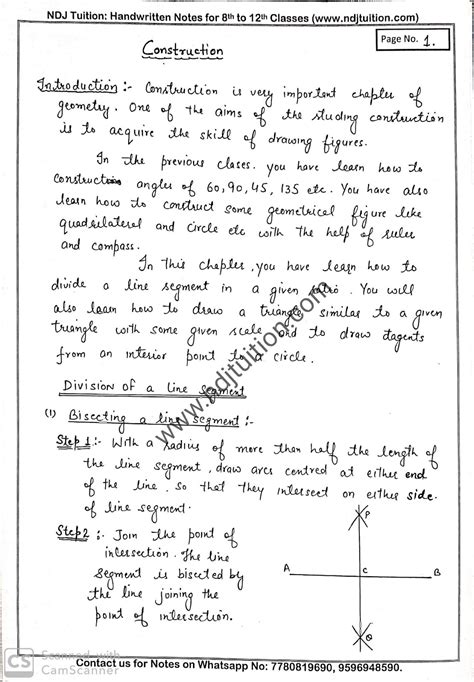 NDJ Tuition: Handwritten Notes for 8th to 12th Classes (www.ndjtuition.com)
Page No. 1.
Construction
Introduction :- Construction is very important chapter of
geometry. One of the aims of the studing construction
is to acquire the skill of drawing figures.
In the previous clases. you have learn how to
construction angles of 60, 90, 45, 135 etc. You have also
learn how to construct some geometrical figure like
quadrilateral and circle etc with the help of ruler
and compass.
In this chapter, you have learn how to
divide a line segment in a given ratio. You will
also learn how to draw a triangle similar to a given
triangle with some given scale and to draw tagents
from an interior point to a circle.
www.ndjtuition.com
Division of a line segment
(1) Bisecting a line segment :-
Step 1 :- With a radius of more than half the length of
the line segment, draw arcs centred at either end
of the line, so that they intersect on either side
of line segment.
Step 2 :- Join the point of
intersection. The line
segment is bisected by
the line joining the
point of intersection.
P
A
C
B
Q
CS Scanned with
CamScanner
Contact us for Notes on Whatsapp No: 7780819690, 9596948590.